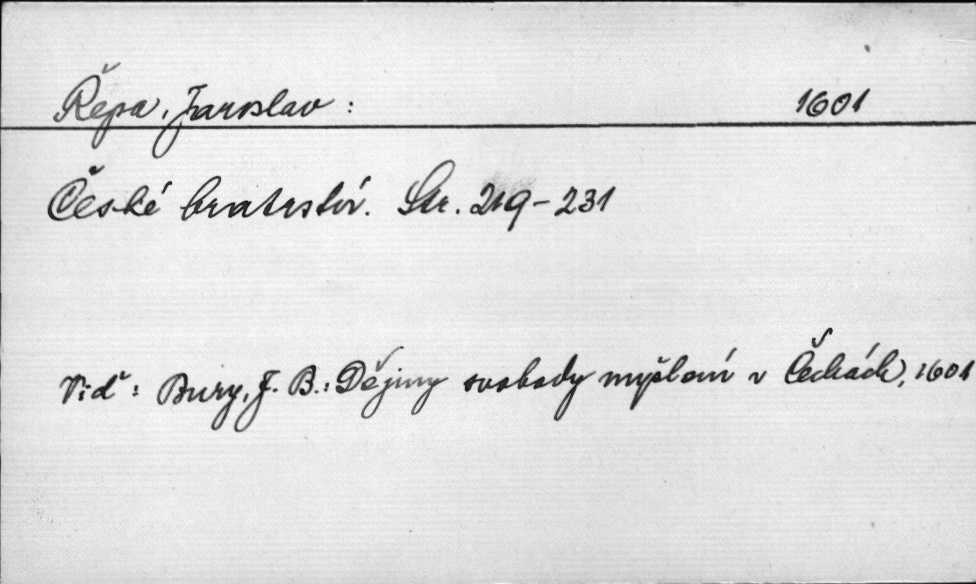 Řepa, Jaroslav : 1601
České bratrství. Str. 219-231
Viď : Bury, J. B.: Dějiny svobody myšlení v Čechách, 1601